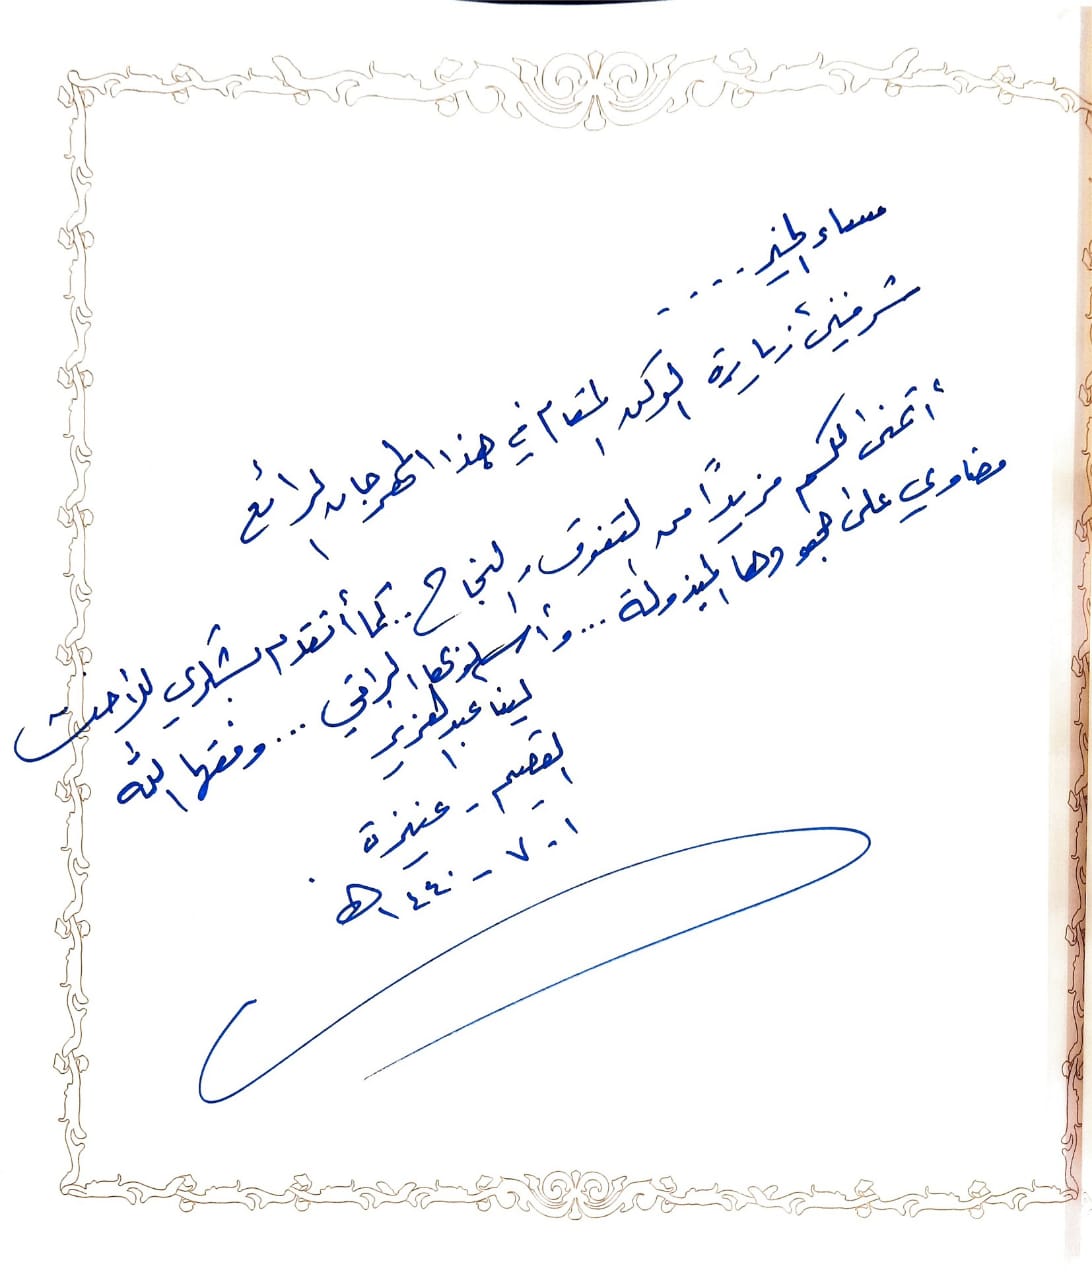 مساء الخير ....
شرفني زيارة الركن المقام في هذا المهرجان الرائع
أتمنى لكم مزيدًا من التفوق والنجاح .. كما أتقدم بشكري للأخت
مضاوي على جهودها المبذولة ... وأسلوبها الراقي ... وفقها الله
لينا عبدالعزيز
القصيم - عنيزة
١ - ٧ - ١٤٤٠هـ